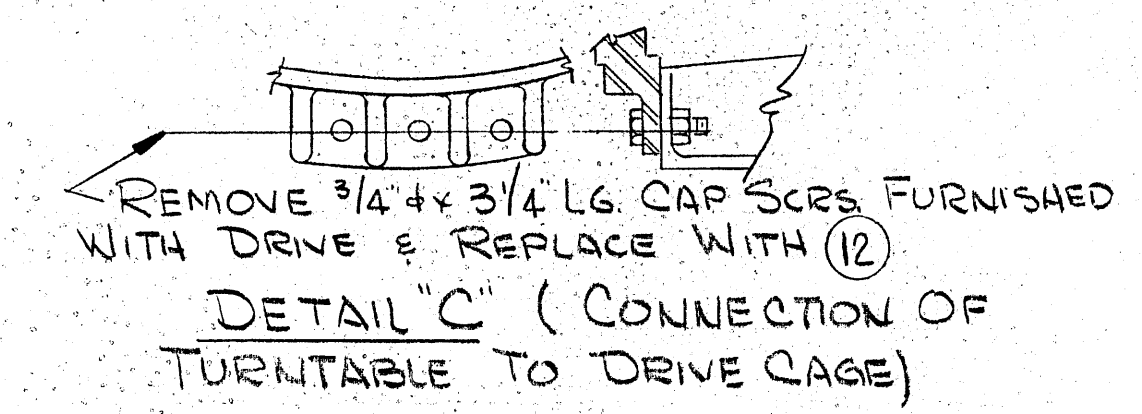 REMOVE 3/4" ϕ x 3 1/4" LG. CAP SCRS. FURNISHED
WITH DRIVE & REPLACE WITH 12
DETAIL "C" (CONNECTION OF
TURNTABLE TO DRIVE CAGE)